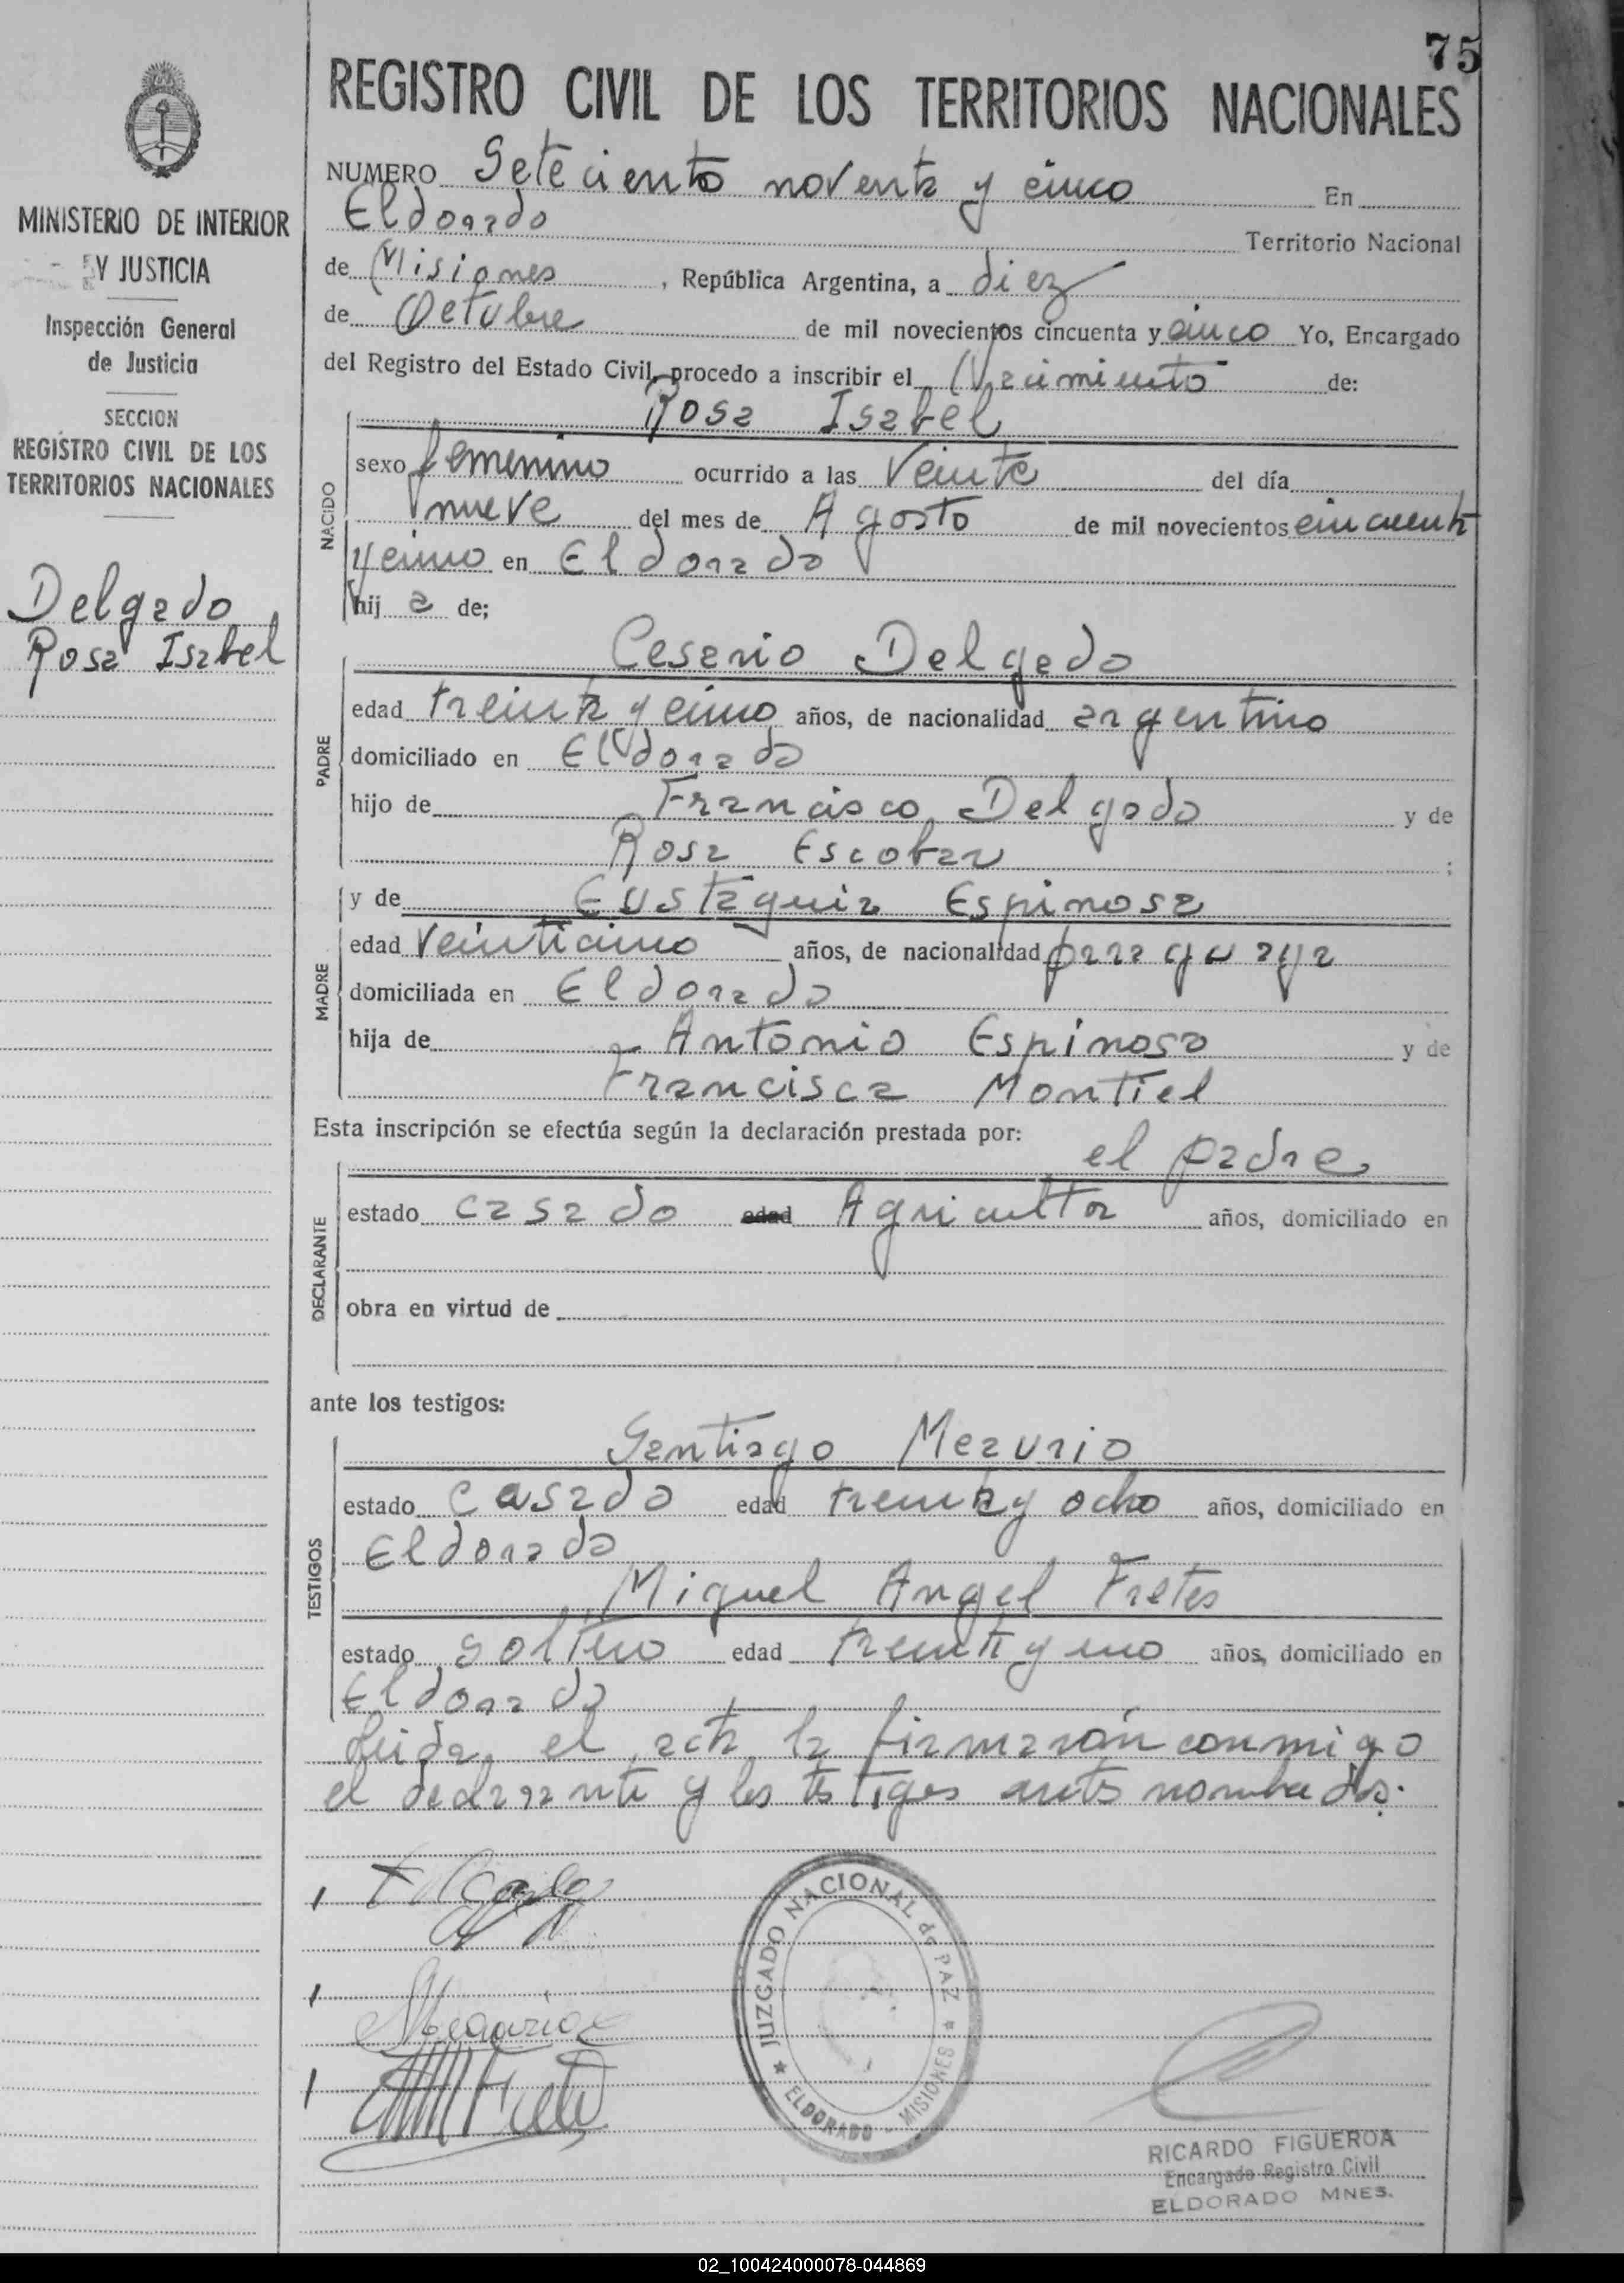 75
REGISTRO CIVIL DE LOS TERRITORIOS NACIONALES
MINISTERIO DE INTERIOR
Y JUSTICIA
Inspección General
de Justicia
SECCION
REGISTRO CIVIL DE LOS
TERRITORIOS NACIONALES
Delgado
Rosa Isabel
NUMERO Seteciento noventa y cinco En
Eldorado Territorio Nacional
de Misiones, República Argentina, a diez
de Octubre de mil novecientos cincuenta y cinco Yo, Encargado
del Registro del Estado Civil, procedo a inscribir el Nacimiento de:
NACIDO
Rosa Isabel
sexo femenino ocurrido a las Veinte del día
nueve del mes de Agosto de mil novecientos cincuenta
y cinco en Eldorado
hija de;
PADRE
Cesario Delgado
edad treinta y cinco años, de nacionalidad argentino
domiciliado en Eldorado
hijo de Francisco Delgado y de
Rosa Escobar ;
MADRE
y de Eustaquia Espinosa
edad Veinticinco años, de nacionalidad paraguaya
domiciliada en Eldorado
hija de Antonio Espinosa y de
Francisca Montiel
Esta inscripción se efectúa según la declaración prestada por:
DECLARANTE
el padre
estado casado edad Agricultor años, domiciliado en
obra en virtud de
ante los testigos:
TESTIGOS
Santiago Mezurio
estado casado edad treinta y ocho años, domiciliado en
Eldorado
Miguel Angel Fretes
estado soltero edad treinta y uno años, domiciliado en
Eldorado
Leida el acta la firmarán conmigo
el declarante y los testigos antes nombrados.
JUZGADO NACIONAL de PAZ
ELDORADO - MISIONES
RICARDO FIGUEROA
Encargado Registro Civil
ELDORADO MNES.
02_100424000078-044869